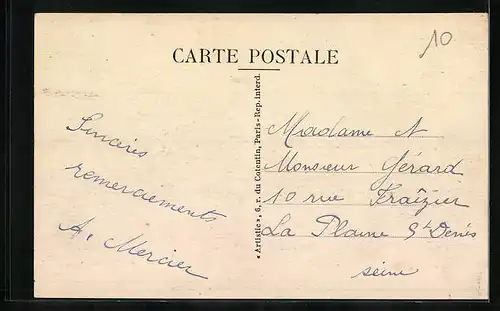 CARTE POSTALE
10
Sincères
remerciements
A. Mercier
« Artistic », 6, r. du Cotentin, Paris - Rep. interd.
Madame &
Monsieur Gérard
10 rue Fraîzier
La Plaine St Denis
Seine